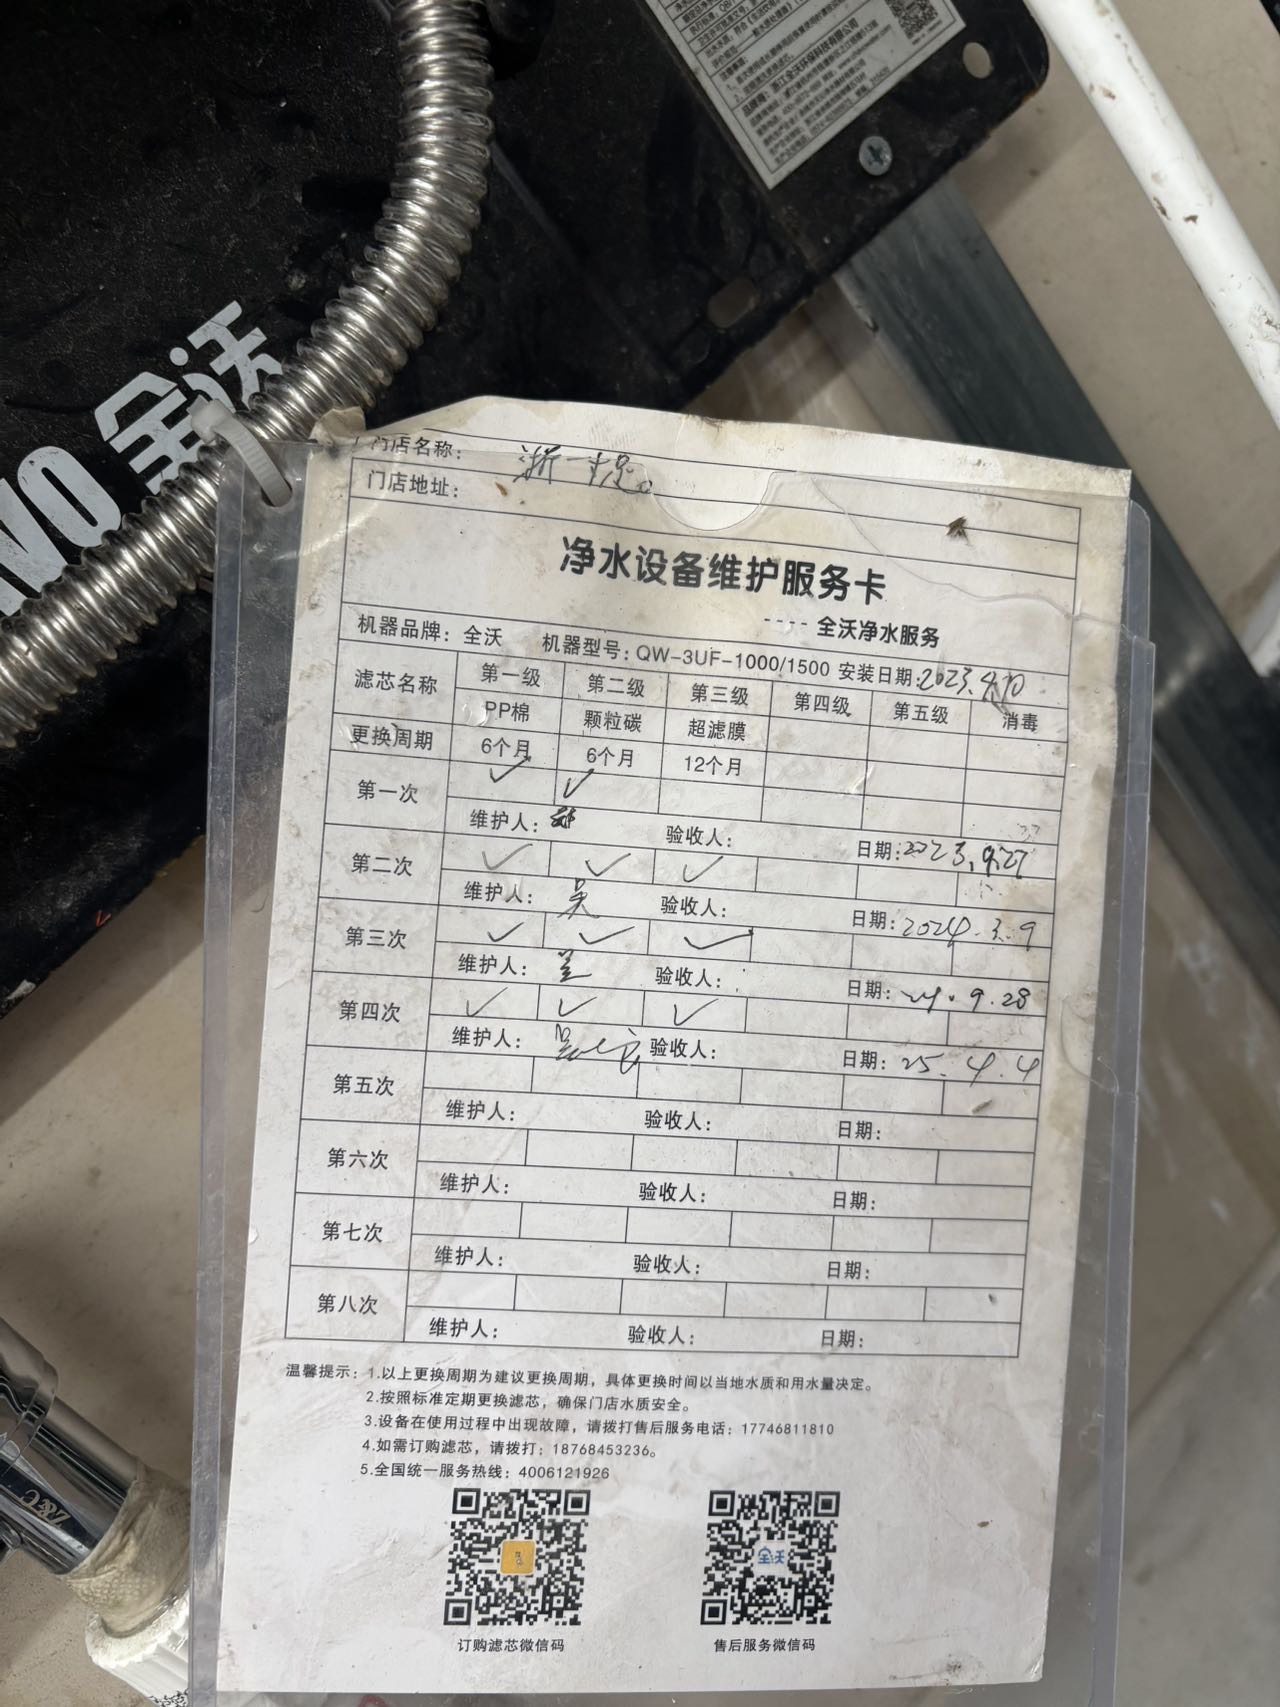 全沃
门店名称：
门店地址：
净水设备维护服务卡
---- 全沃净水服务
机器品牌：全沃 机器型号：QW-3UF-1000/1500 安装日期：2023.4.10
滤芯名称 第一级 第二级 第三级 第四级 第五级 消毒
PP棉 颗粒碳 超滤膜
更换周期 6个月 6个月 12个月
第一次 ✓ ✓
维护人： 验收人： 日期：2023.9.27
第二次 ✓ ✓ ✓
维护人：吴 验收人： 日期：2024.3.9
第三次 ✓ ✓ ✓
维护人： 验收人： 日期：24.9.28
第四次 ✓ ✓ ✓
维护人： 验收人： 日期：25.4.4
第五次
维护人： 验收人： 日期：
第六次
维护人： 验收人： 日期：
第七次
维护人： 验收人： 日期：
第八次
维护人： 验收人： 日期：
温馨提示：1.以上更换周期为建议更换周期，具体更换时间以当地水质和用水量决定。
2.按照标准定期更换滤芯，确保门店水质安全。
3.设备在使用过程中出现故障，请拨打售后服务电话：17746811810
4.如需订购滤芯，请拨打：18768453236。
5.全国统一服务热线：4006121926
全沃
订购滤芯微信码 售后服务微信码